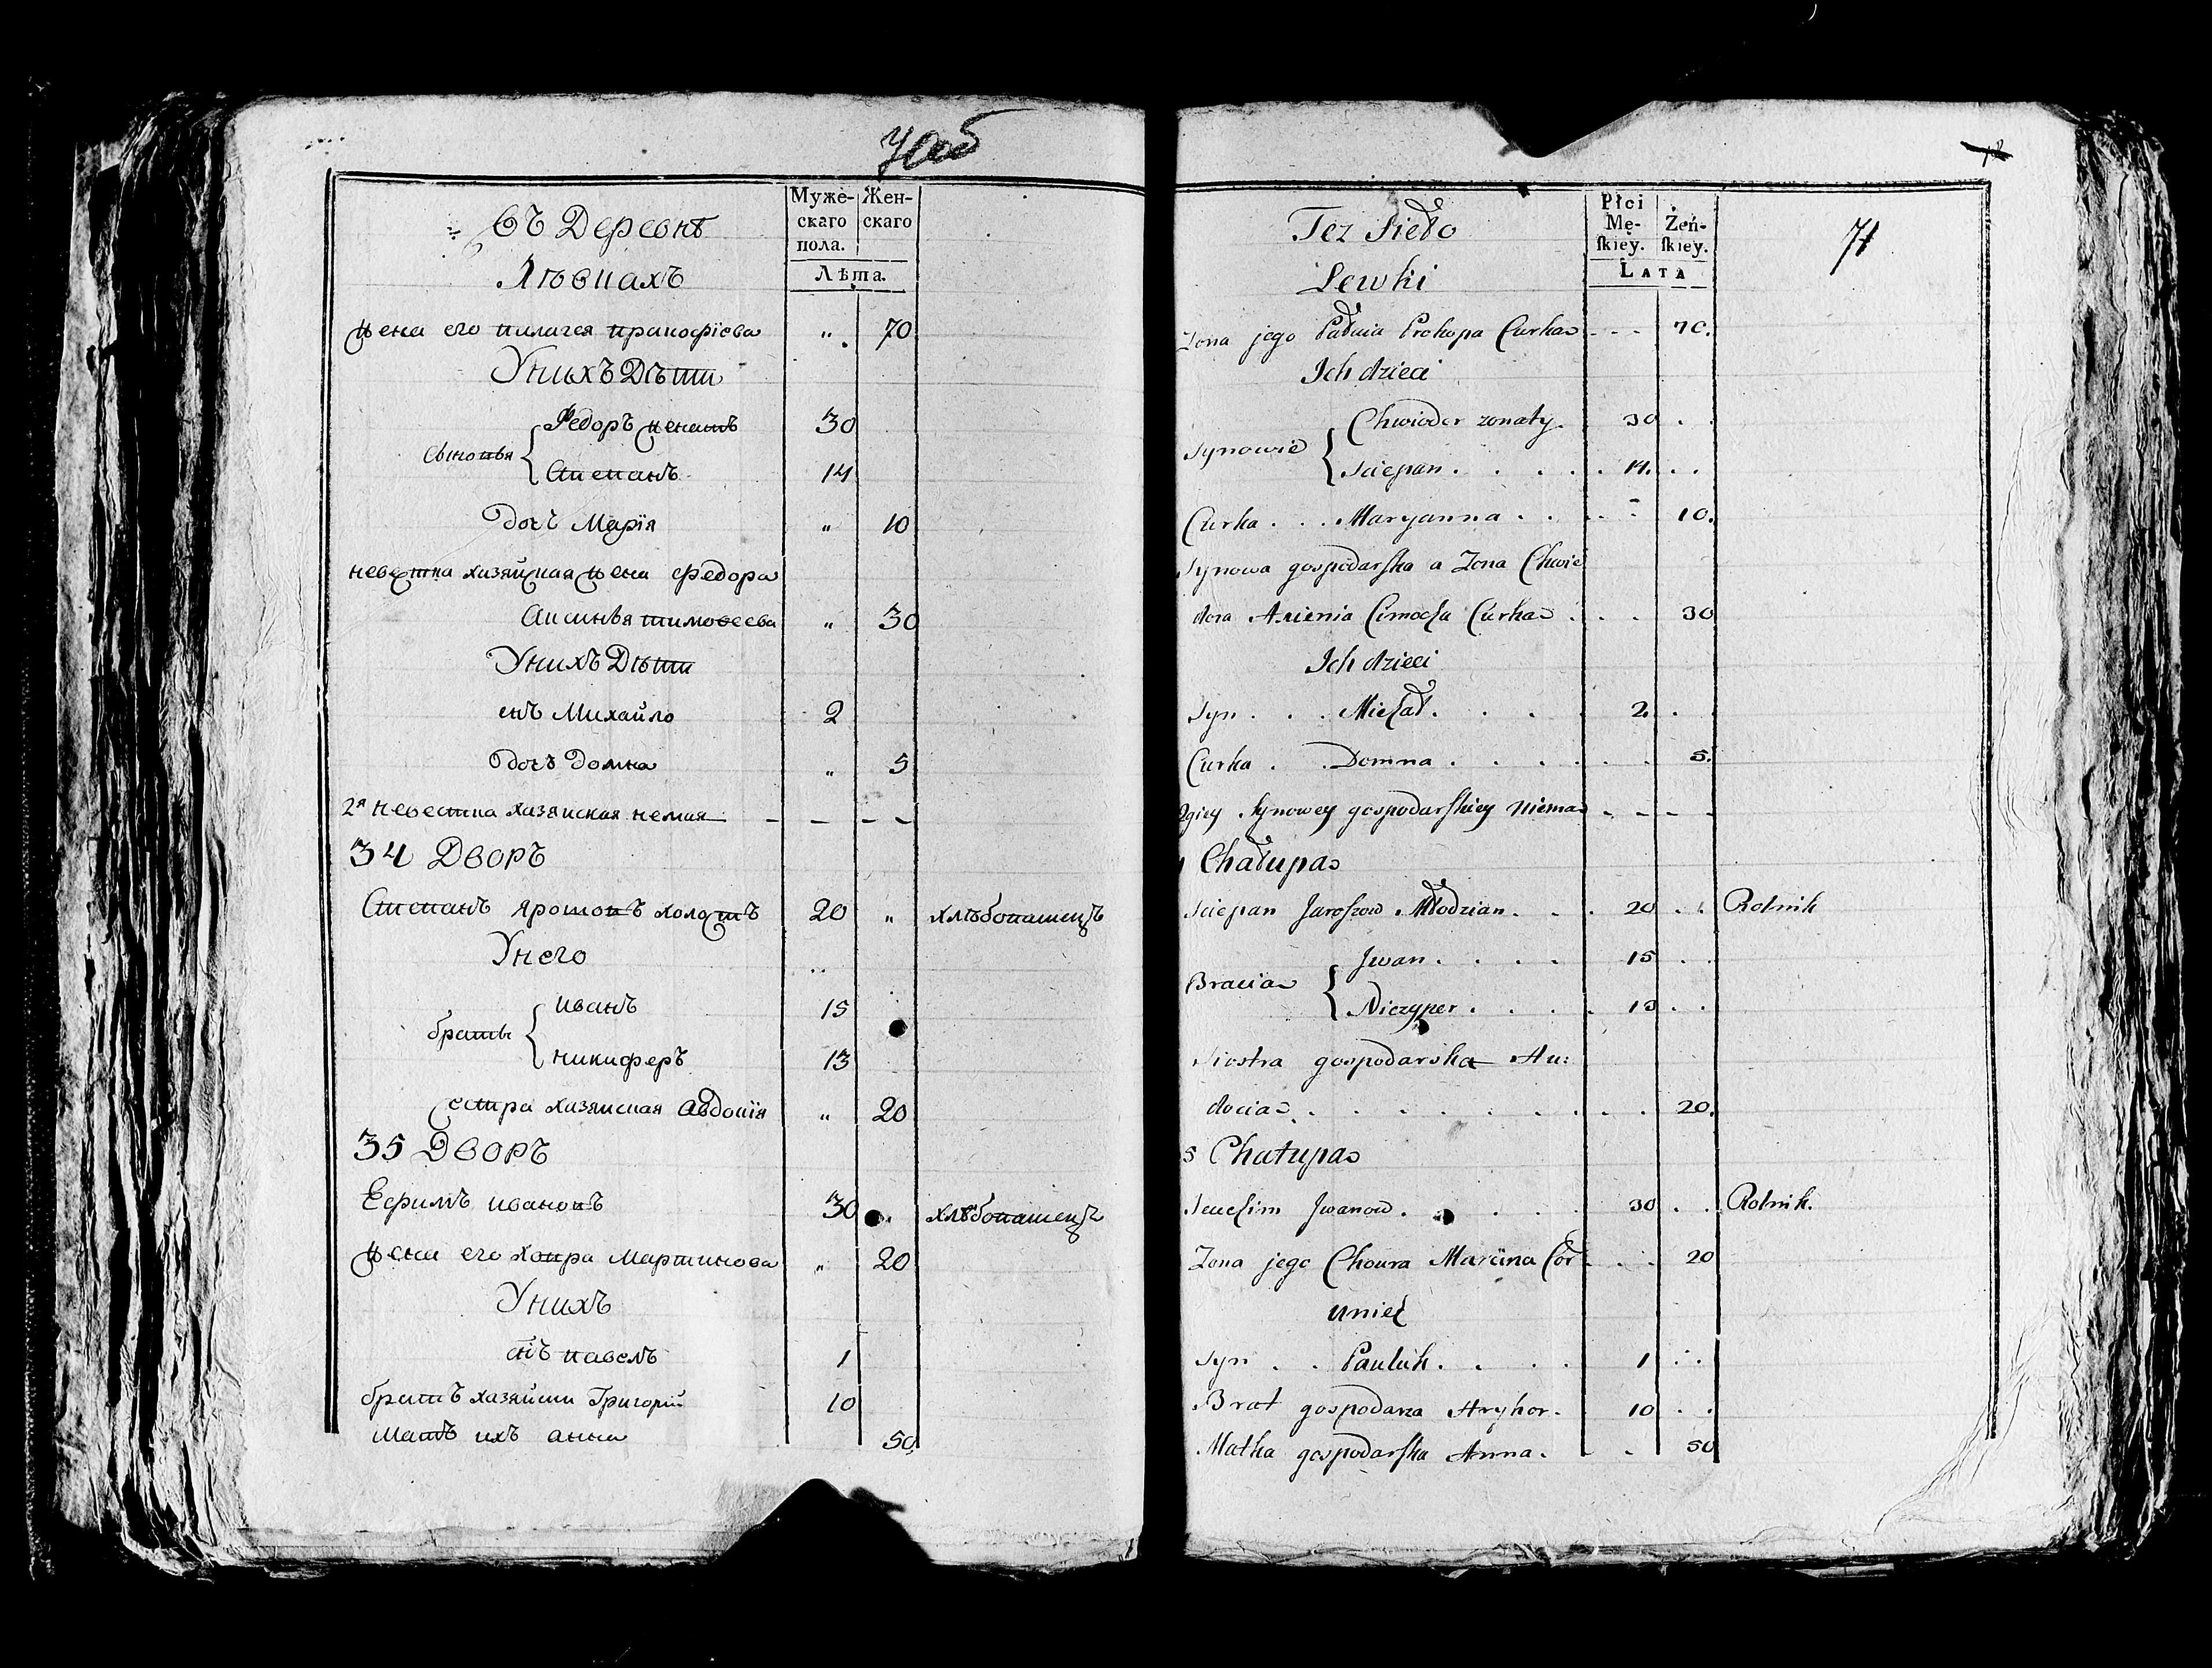 70об
Муже-
скаго
пола.
Жен-
скаго
Лѣта.
Въ Деревнѣ
Лѣвпахъ
жена его палагея пракофіева „ 70
Унихъ Дѣти
Сыновья
Федоръ женатъ 30
Степанъ 14
дочъ Марія „ 10
невестка хазяйская жена федора
Аксинья тимоѳеева „ 30
Унихъ Дѣти
снъ Михайло 2
дочъ Домна „ 5
2я невестка хазяиская немая — — — —
34 Дворъ
Степанъ ярошовъ холостъ 20 „ хлѣбопашецъ
Унего
братья
иванъ 15
никиферъ 13
сестра хазяиская авдокія „ 20
35 Дворъ
Ефимъ ивановъ 30 „ хлѣбопашецъ
жена его ховра мартинова „ 20
Унихъ
снъ павелъ 1
братъ хазяйски Григорій 10
мать ихъ анна 50
71
Płci
Mę-
ſkiey.
Żeń-
ſkiey.
LATA
Też Sieło
Lewki
Zona jego Pałaia Prokopa Curka - - - 70.
Ich dzieci
Synowie
Chwioder zonaty. 30 .
Sciepan . . . . . 14. . .
Curka . . . Maryanna . . . - 10.
Synowa gospodarſka a Zona Chwie
dora Axienia Cimocha Curka . . . 30
Ich dzieci
Syn . . . Michał . . . . 2. .
Curka . . Domna . . . . . . 5.
2giey Synowey gospodarſkiey niema - - - -
Chałupa
Sciepan Jaroſzow Młodzian . . . 20 . . Rolnik
Bracia
Jwan . . . . 15 . .
Niczyper . . . . 13 . .
Siostra gospodarska Au:
docia . . . . . . . . . 20.
5 Chałupa
Jeuchim Jwanow . . . . . 30 . . Rolnik.
Zona jego Choura Marcina Cór . . . 20
unich
Syn . . Pauluk . . . . 1 . .
Brat gospodarza Hryhor. 10 . .
Matka gospodarſka Anna. - - 50